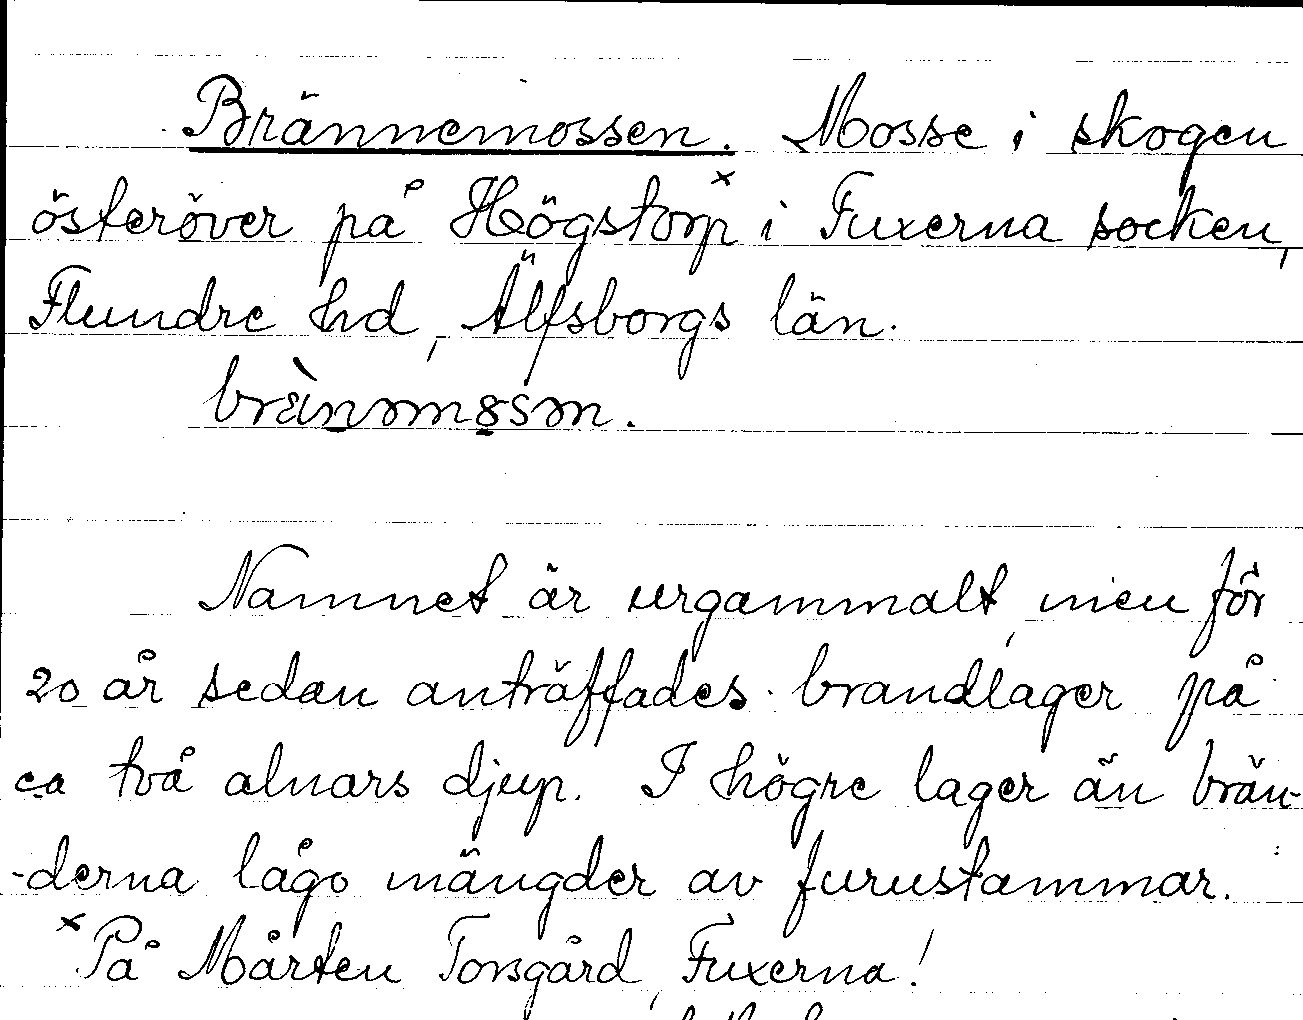 Brännemossen. Mosse i skogen
österöver på Högstorp× i Fuxerna socken,
Flundre hd, Älfsborgs län.
Namnet är urgammalt, men för
20 år sedan anträffades brandlager på
ca två alnars djup. I högre lager än brän-
-derna lågo mängder av furustammar.
× På Mårten Torsgård, Fuxerna!